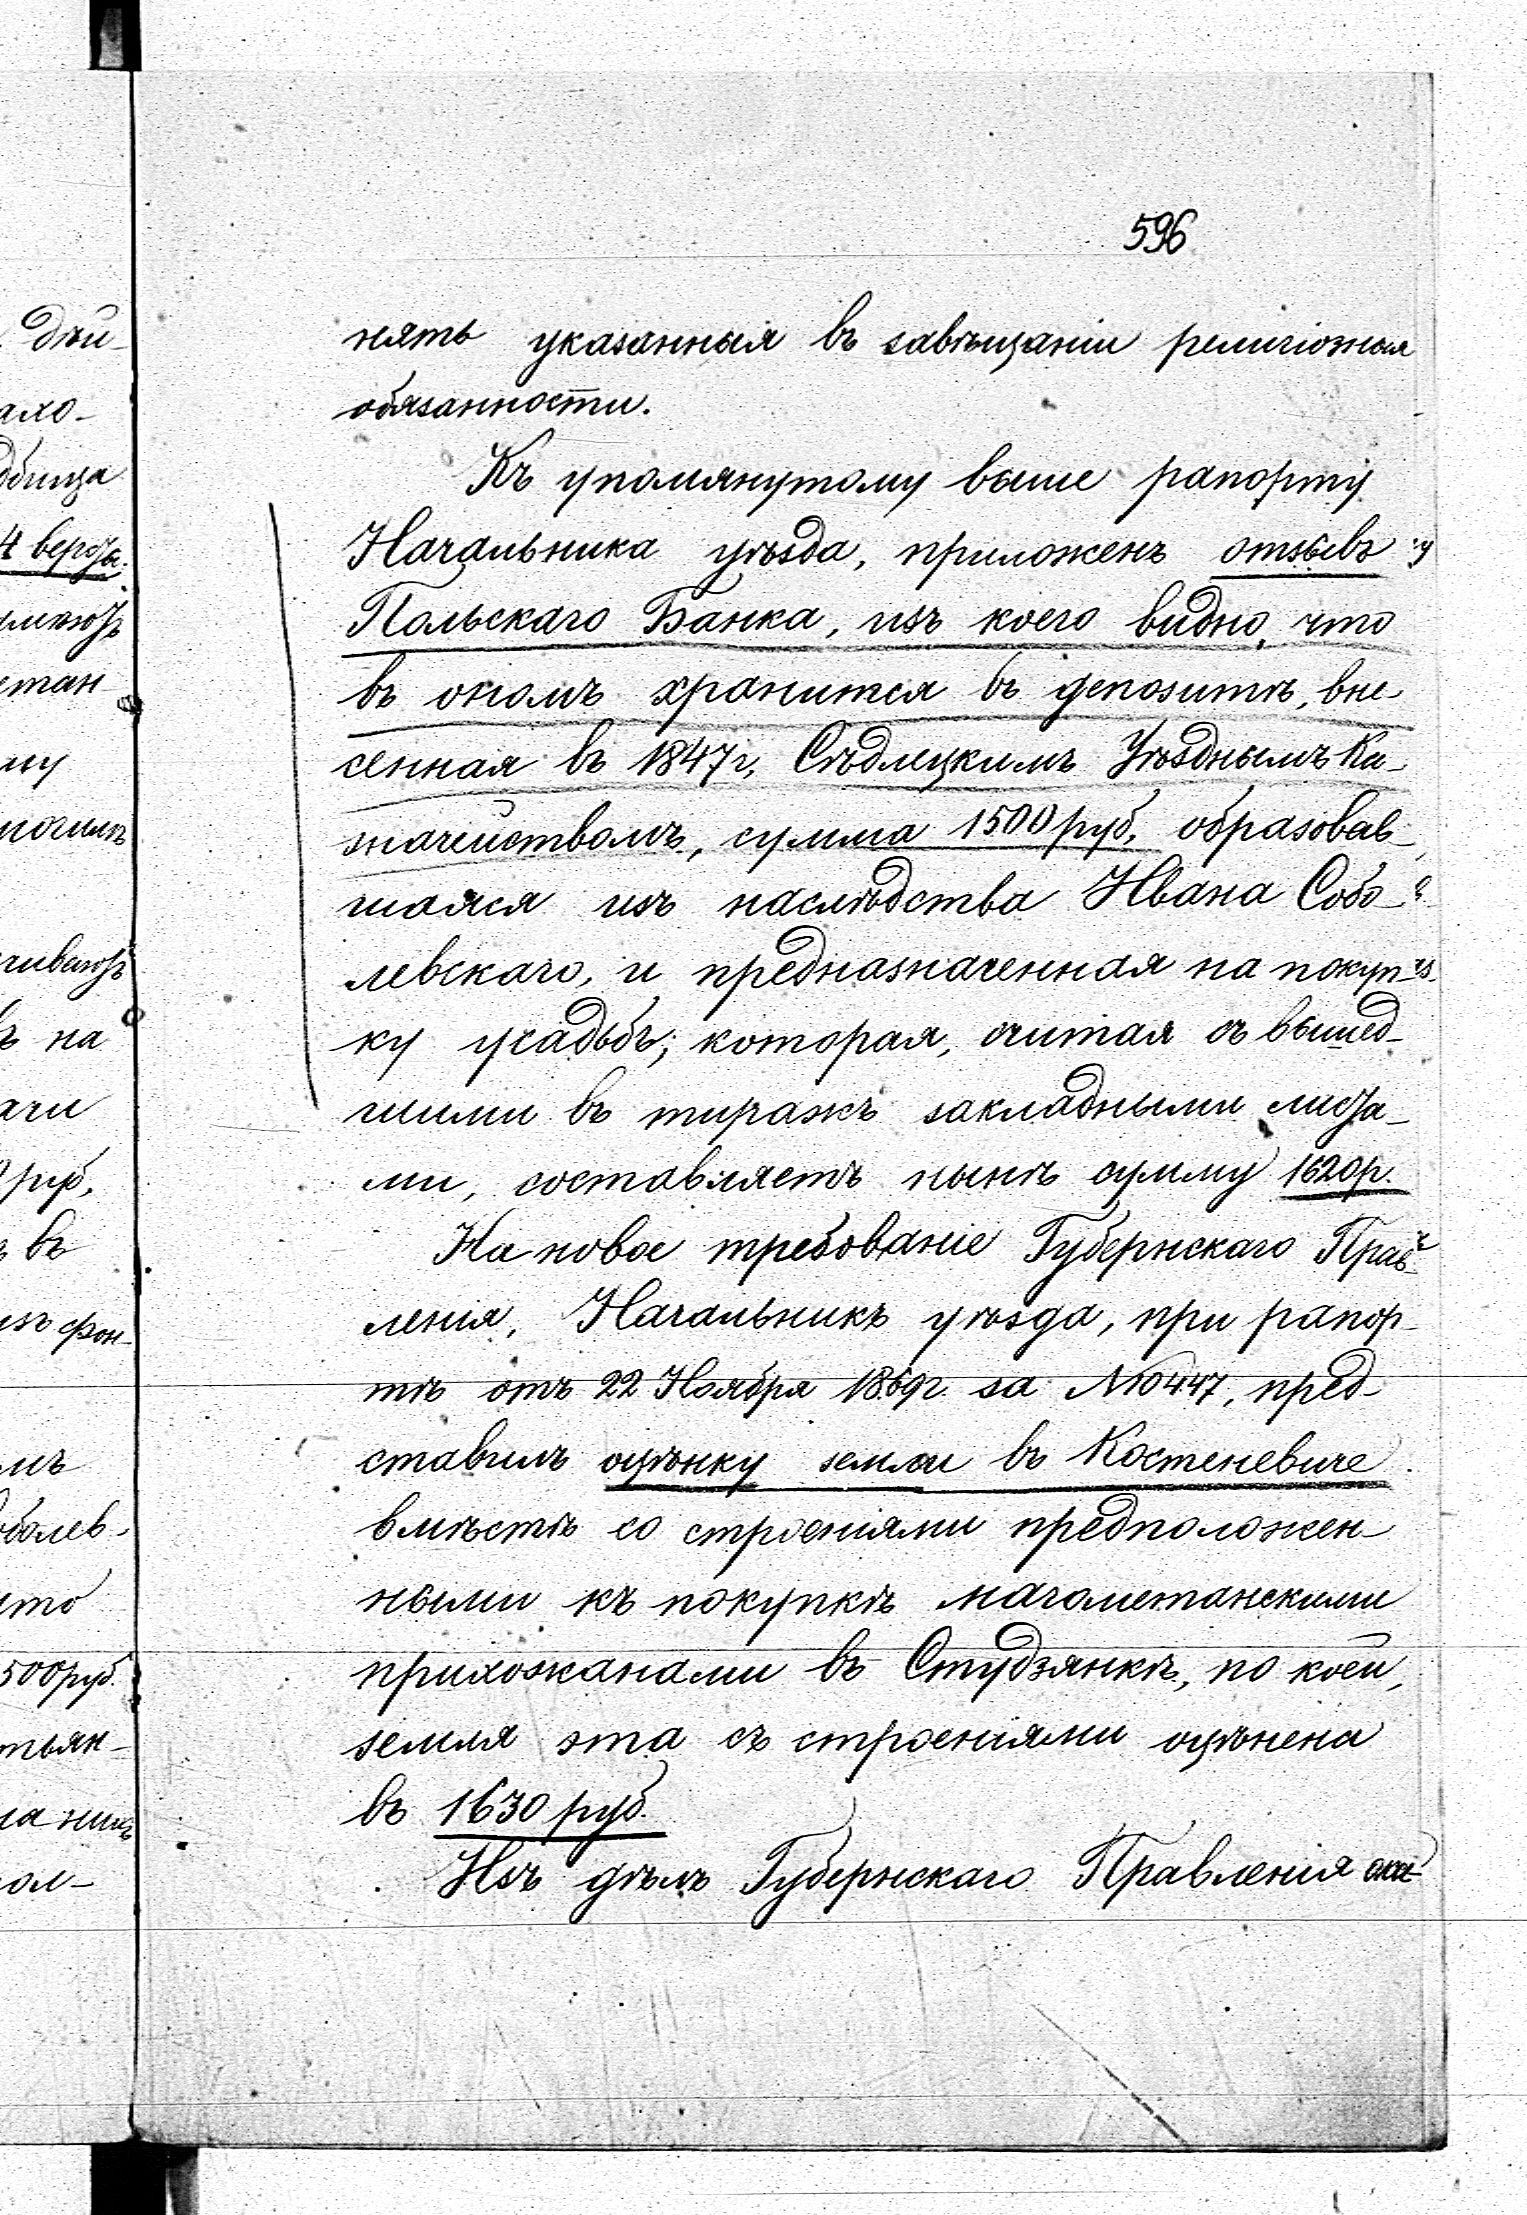 596
нять указанныя въ завѣщаніи религіозныя
обязанности.
Къ упомянутому выше рапорту
Начальника уѣзда, приложенъ отзывъ
Польскаго Банка, изъ коего видно, что
въ ономъ хранится въ депозитѣ, вне-
сенная въ 1847 г. Сѣдлецкимъ Уѣзднымъ Ка-
значействомъ, сумма 1500 руб. образовав-
шаяся изъ наслѣдства Ивана Собо-
левскаго, и предназначенная на покуп-
ку усадьбъ; которая, считая съ вышед-
шими въ тиражъ закладными листа-
ми, составляетъ нынѣ сумму 1620 р.
На новое требованіе Губернскаго Прав-
ленія, Начальникъ уѣзда, при рапор-
тѣ отъ 22 Ноября 1869 г. за № 10447, пред-
ставилъ оцѣнку земли въ Костеневиче
вмѣстѣ со строеніями предположен-
ными къ покупкѣ магометанскими
прихожанами въ Студзянкѣ, по коей,
земля эта съ строеніями оцѣнена
въ 1630 руб.
Изъ дѣлъ Губернскаго Правленія ока-